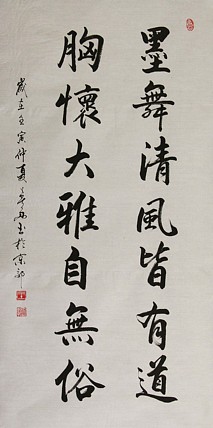 墨舞清風皆有道
胸懷大雅自無俗
歲在壬寅仲夏
書於京郊